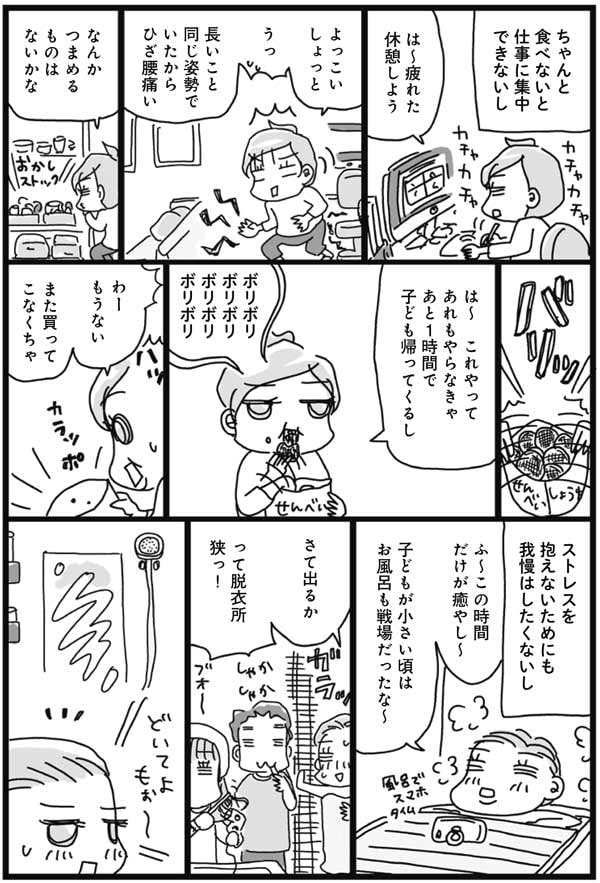 ちゃんと
食べないと
仕事に集中
できないし
は〜疲れた
休憩しよう
カチャカチャ
カチャカチャ
よっこい
しょっと
うっ
長いこと
同じ姿勢で
いたから
ひざ腰痛い
なんか
つまめる
ものは
ないかな
おかし
ストック
バリッ
せんべい
しょうゆ
は〜 これやって
あれもやらなきゃ
あと1時間で
子ども帰ってくるし
ボリボリ
ボリボリ
ボリボリ
せんべい
わー
もうない
また買って
こなくちゃ
ハッ
カラッポ
ストレスを
抱えないためにも
我慢はしたくないし
ふ〜この時間
だけが癒やし〜
子どもが小さい頃は
お風呂も戦場だったな〜
風呂で
スマホ
タイム
さて出るか
って脱衣所
狭っ！
しゃか
しゃか
ブオー
どいてよ
もぉ〜